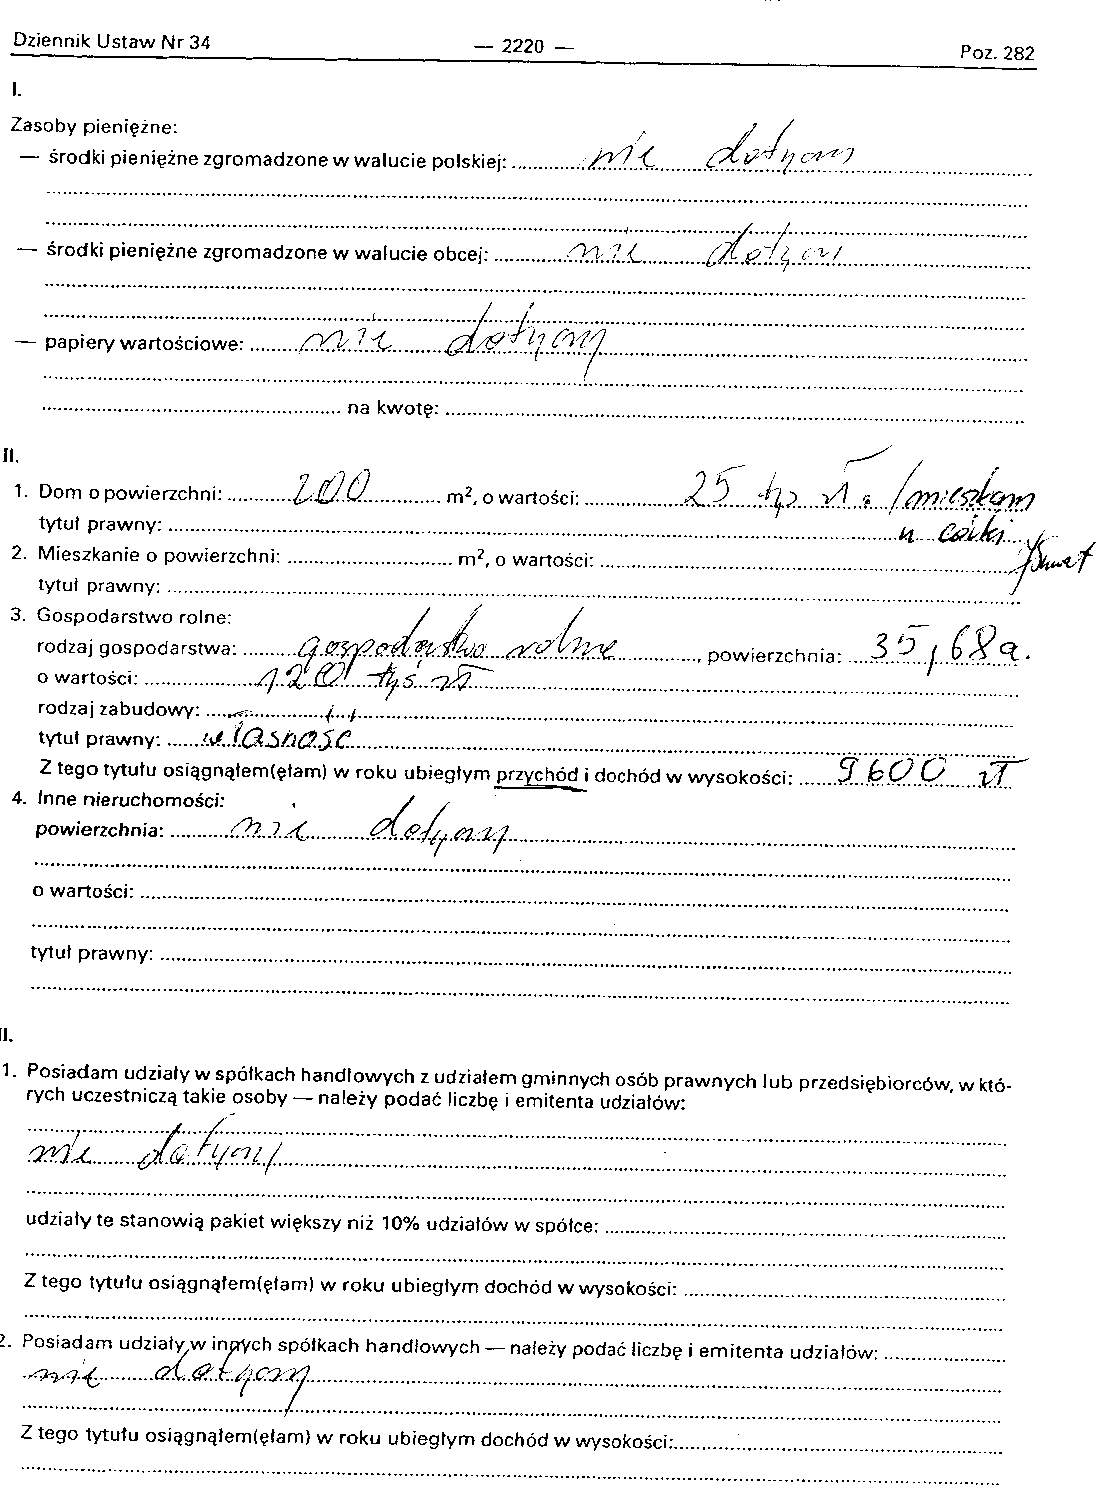 Dziennik Ustaw Nr 34 — 2220 — Poz. 282
I.
Zasoby pieniężne:
— środki pieniężne zgromadzone w walucie polskiej: nie dotyczy
— środki pieniężne zgromadzone w walucie obcej: nie dotyczy
— papiery wartościowe: nie dotyczy
na kwotę:
II.
1. Dom o powierzchni: 200 m², o wartości: 25 tys zł. /mieszkam
tytuł prawny: u córki
2. Mieszkanie o powierzchni: m², o wartości:
tytuł prawny:
3. Gospodarstwo rolne:
rodzaj gospodarstwa: gospodarstwo rolne, powierzchnia: 35,68 a.
o wartości: 120 tyś zł
rodzaj zabudowy:
tytuł prawny: własność
Z tego tytułu osiągnąłem(ęłam) w roku ubiegłym przychód i dochód w wysokości: 9600 zł
4. Inne nieruchomości:
powierzchnia: nie dotyczy
o wartości:
tytuł prawny:
II.
1. Posiadam udziały w spółkach handlowych z udziałem gminnych osób prawnych lub przedsiębiorców, w któ-
rych uczestniczą takie osoby — należy podać liczbę i emitenta udziałów:
nie dotyczy
udziały te stanowią pakiet większy niż 10% udziałów w spółce:
Z tego tytułu osiągnąłem(ęłam) w roku ubiegłym dochód w wysokości:
2. Posiadam udziały w innych spółkach handlowych — należy podać liczbę i emitenta udziałów:
nie dotyczy
Z tego tytułu osiągnąłem(ęłam) w roku ubiegłym dochód w wysokości: